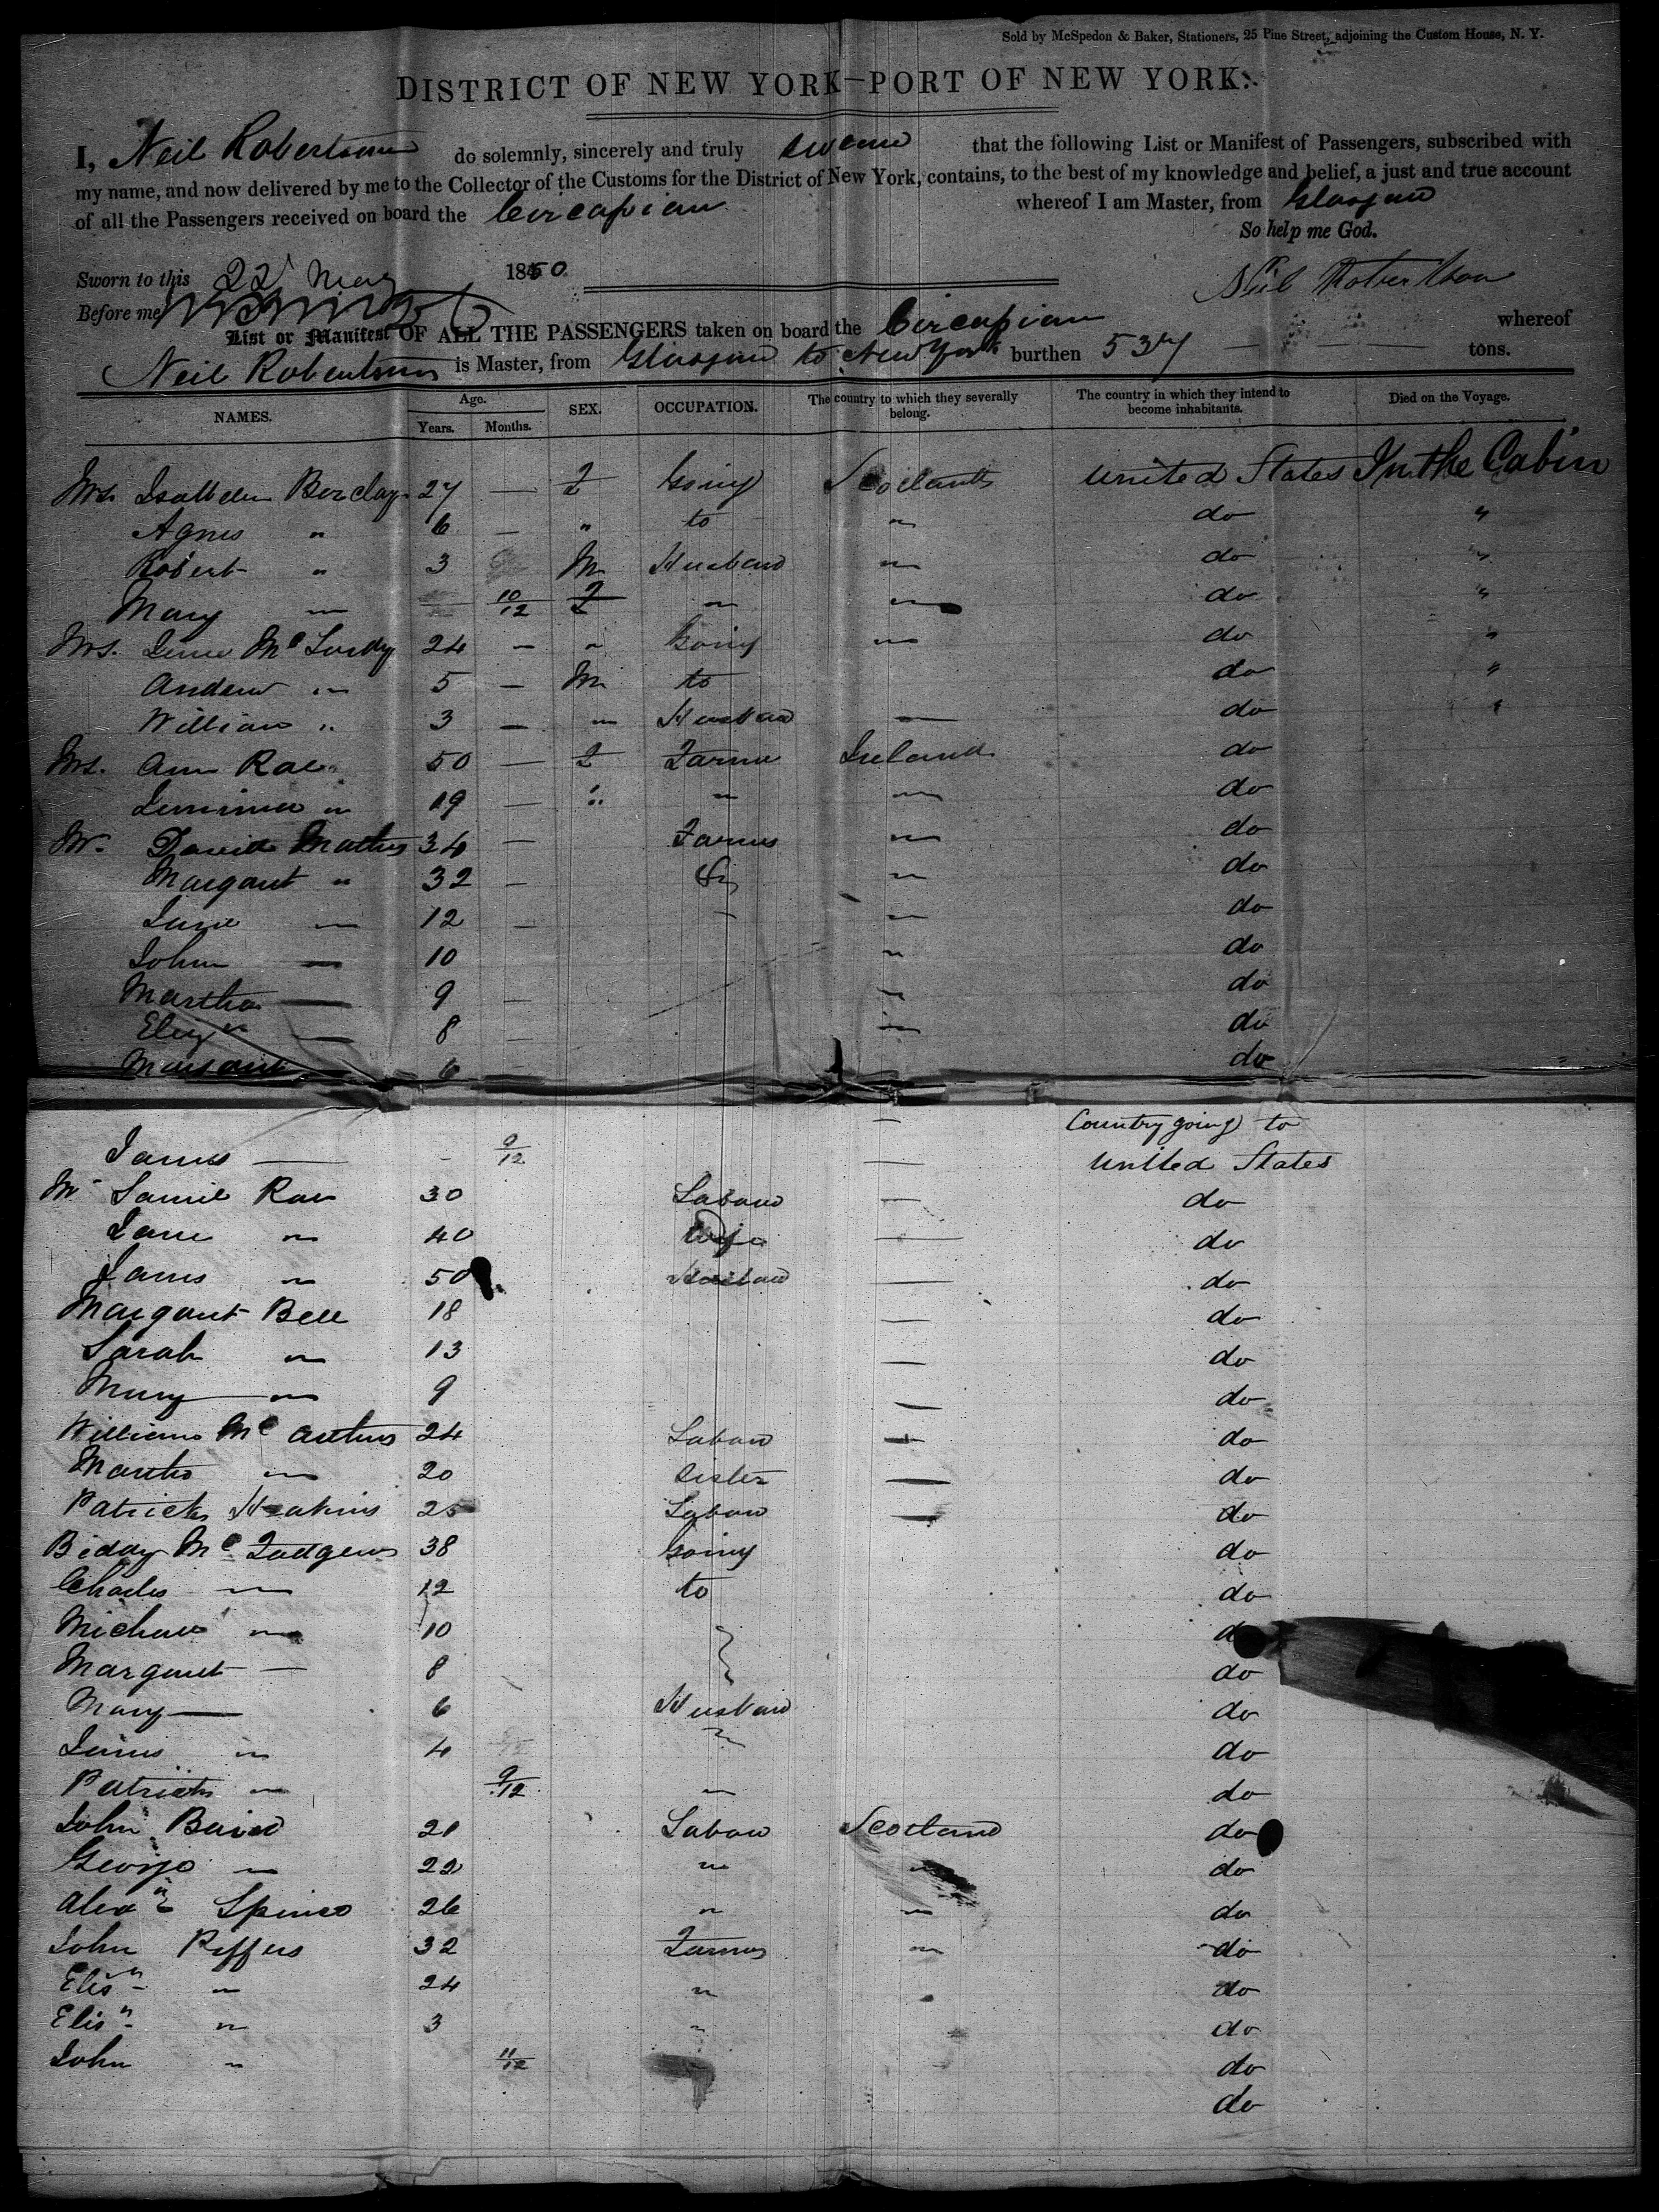 Sold by McSpedon & Baker, Stationers, 25 Pine Street, adjoining the Custom House, N. Y.
DISTRICT OF NEW YORK—PORT OF NEW YORK.
I, Neil Robertson do solemnly, sincerely and truly swear that the following List or Manifest of Passengers, subscribed with
my name, and now delivered by me to the Collector of the Customs for the District of New York, contains, to the best of my knowledge and belief, a just and true account
of all the Passengers received on board the Circassian whereof I am Master, from Glasgow
So help me God.
Sworn to this 22 May 1850 Neil Robertson
Before me
List or Manifest OF ALL THE PASSENGERS taken on board the Circassian whereof
Neil Robertson is Master, from Glasgow to New York burthen 537 tons.
NAMES. Age. Years. Months. SEX. OCCUPATION. The country to which they severally belong. The country in which they intend to become inhabitants. Died on the Voyage.
Mrs. Isabella Barclay 27 — f Going Scotland United States In the Cabin
Agnes " 6 — " to " do "
Robert " 3 M Husband " do "
Mary " 10/12 f " " do "
Mrs. Jane Mc 24 — " Going " do "
Andrew " 5 — M to do "
William " 3 — " Husband — do "
Mrs. Ann Rae 50 — f Farmer Ireland do
Jemima " 19 — " " " do
Mr. David Mathers 34 — Farmer " do
Margaret " 32 — " do
Jane " 12 — " " do
John — 10 " do
Martha — 9 — " do
Eliza — 8 — " do
Margaret 6 do
— Country going to
James — - 9/12 — United States
Mr Samuel Rae 30 Labour — do
Jane " 40 Wife — do
James " 50 Husband — do
Margaret Bell 18 — do
Sarah " 13 — do
Mary " 9 — do
William Mc Arthur 24 Labour — do
Martha " 20 Sister — do
Patrick 25 Labour — do
Biddy Mc 38 Going do
Charles " 12 to do
Michael " 10 do
Margaret — 8 do
Mary — 6 Husband do
James " 4 " do
Patrick " 9/12 " do
John Baird 21 Labour Scotland do
George " 22 " " do
Alexr 26 " " do
John 32 Farmer " do
Elisth " 24 " " do
Elisth " 3 " do
John " 11/12 do
do